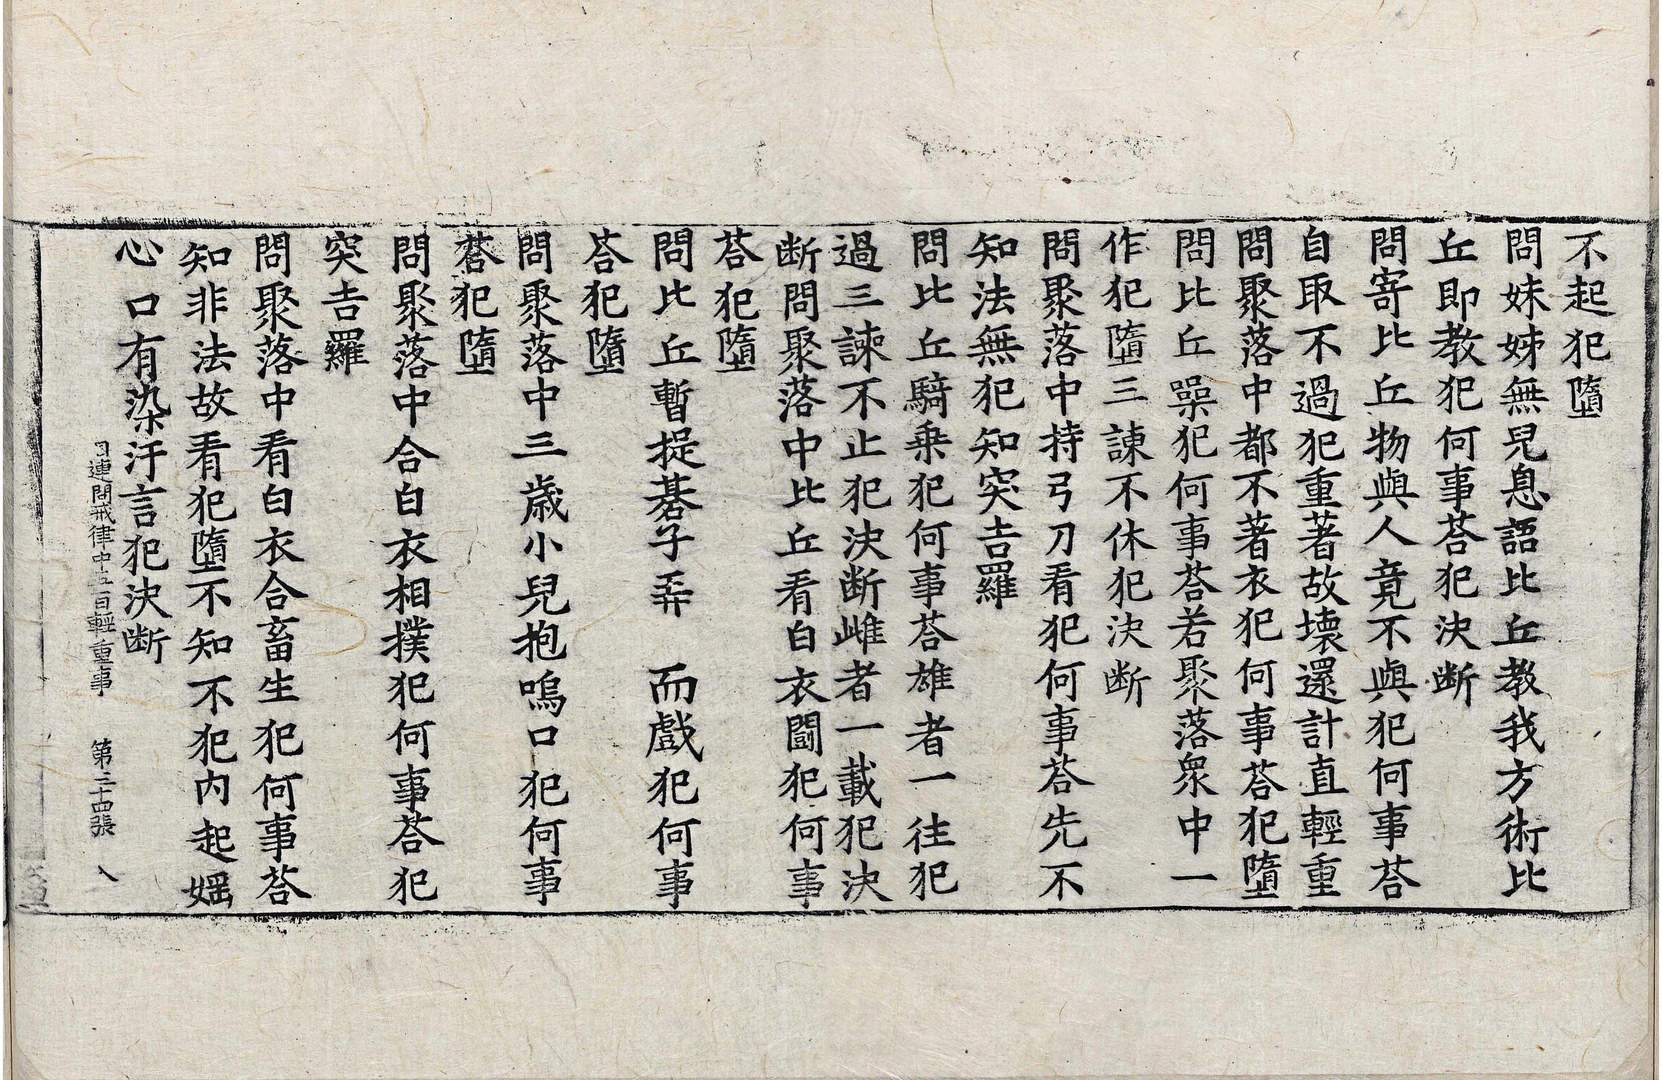 不起犯墮
問妹姊無兒息語比丘教我方術比
丘即教犯何事荅犯決断
問寄比丘物與人竟不與犯何事荅
自取不過犯重著故壞還計直輕重
問聚落中都不著衣犯何事荅犯墮
問比丘噪犯何事荅若聚落衆中一
作犯墮三諫不休犯決断
問聚落中持弓刀看犯何事荅先不
知法無犯知突吉羅
問比丘騎乗犯何事荅雄者一往犯
過三諫不止犯決断雌者一載犯決
断問聚落中比丘看白衣闘犯何事
荅犯墮
問比丘暫捉碁子弄 而戲犯何事
荅犯墮
問聚落中三歳小兒抱嗚口犯何事
荅犯墮
問聚落中合白衣相撲犯何事荅犯
突吉羅
問聚落中看白衣合畜生犯何事荅
知非法故看犯墮不知不犯内起婬
心口有染汙言犯決断
目連問戒律中五百輕重事 第三十四張